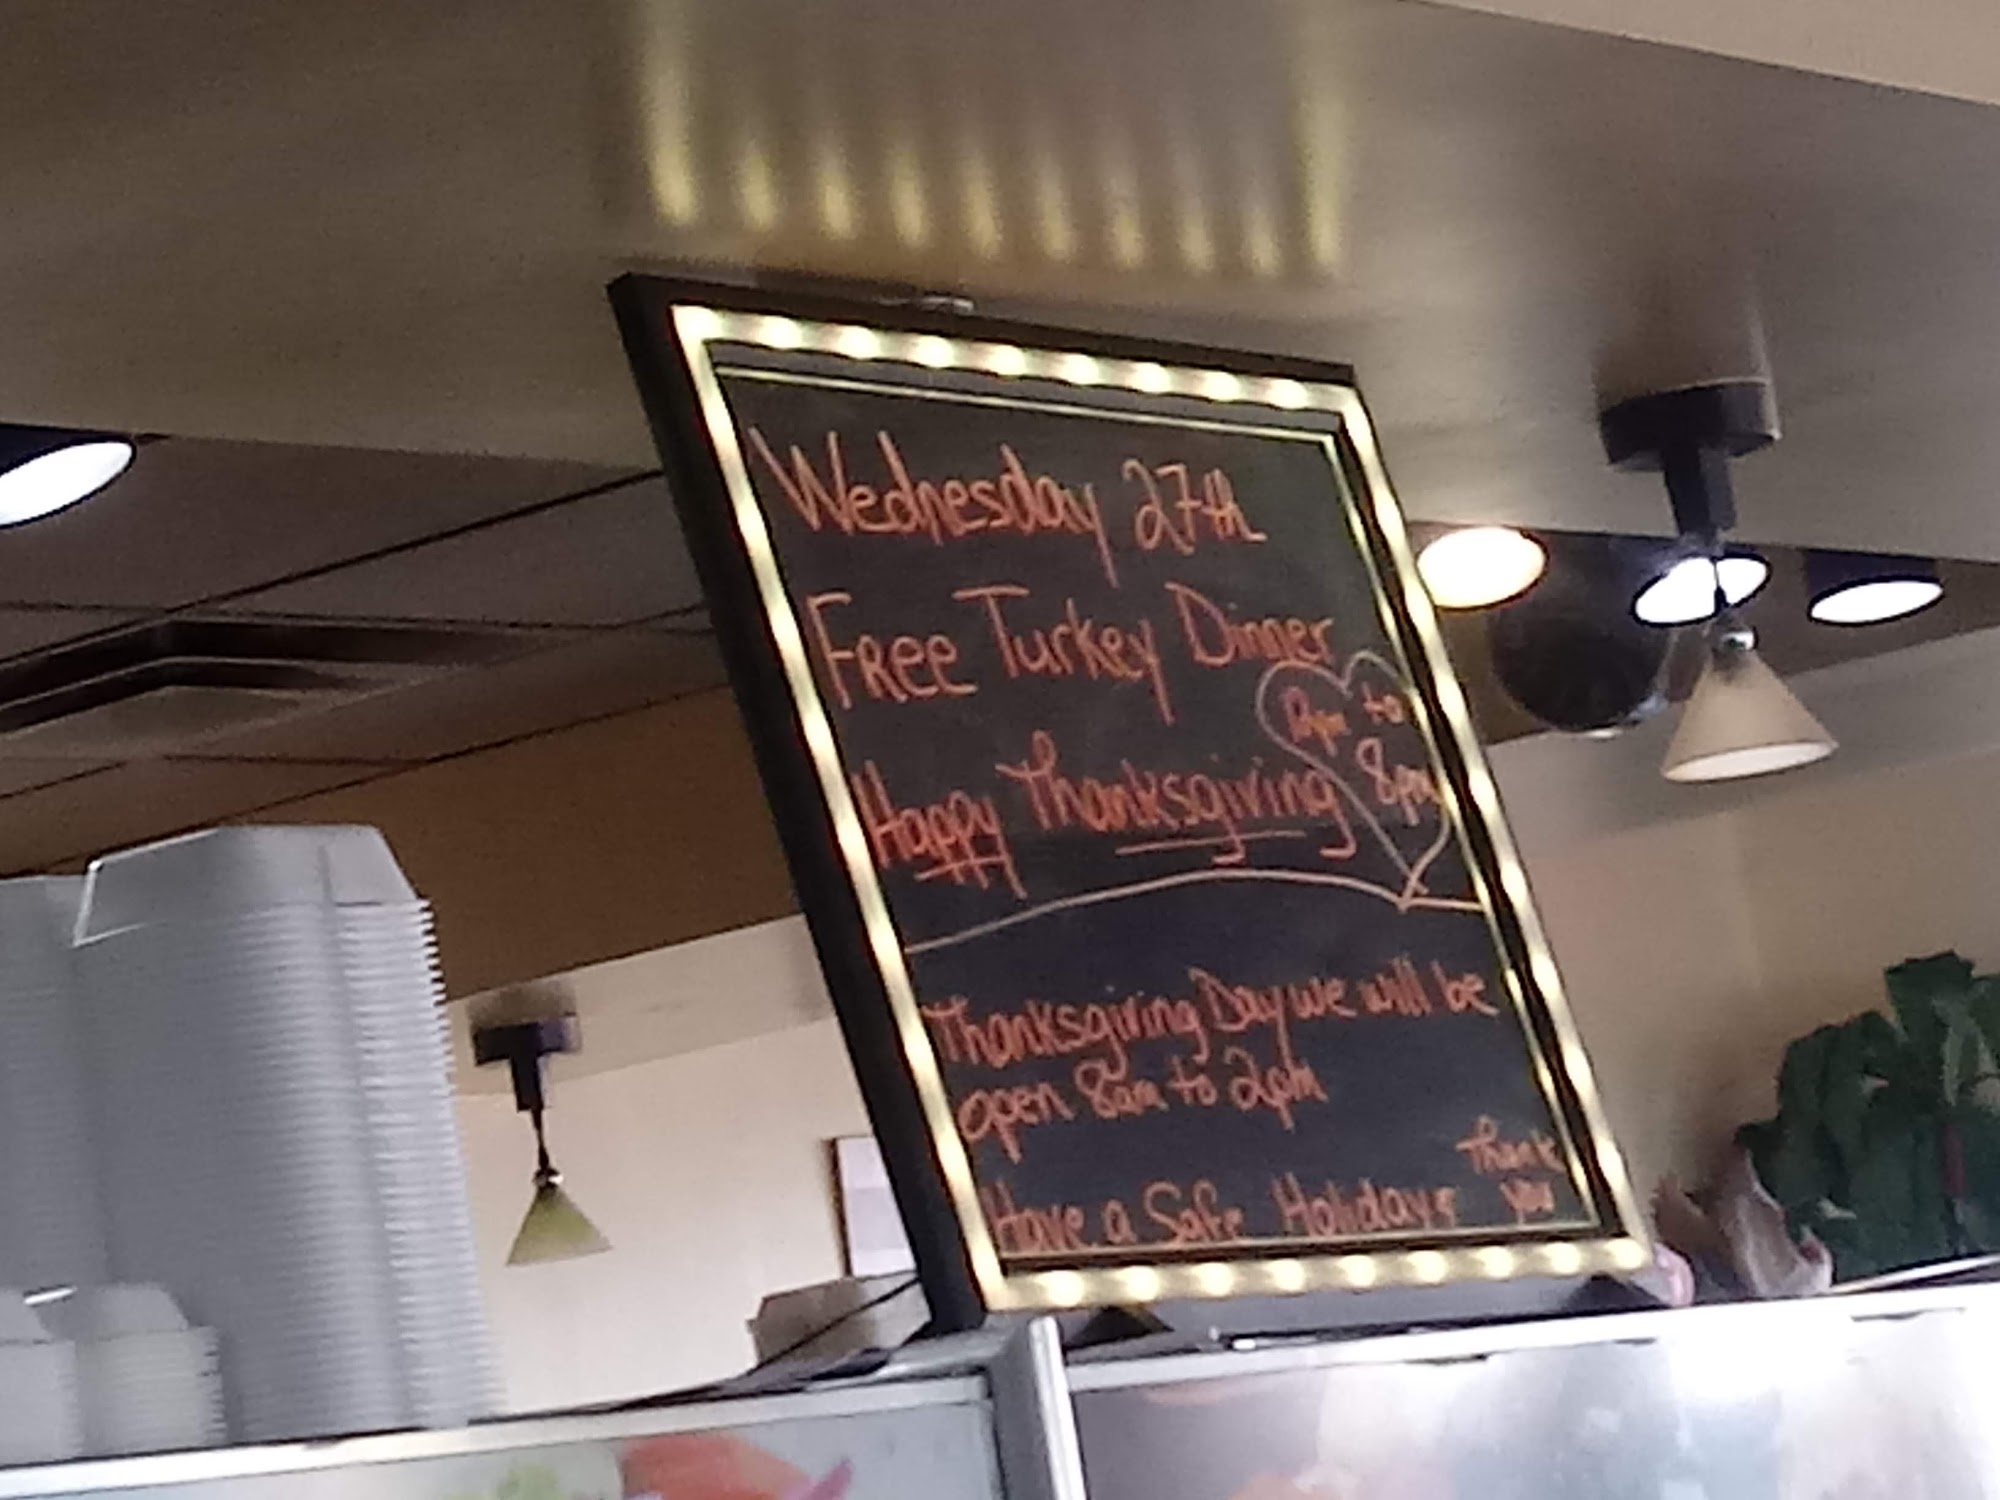 Wednesday 27th
Free Turkey Dinner
to
8pm
Happy Thanksgiving
Thanksgiving Day we will be
open 8am to 2pm
Have a Safe Holidays
Thank
you